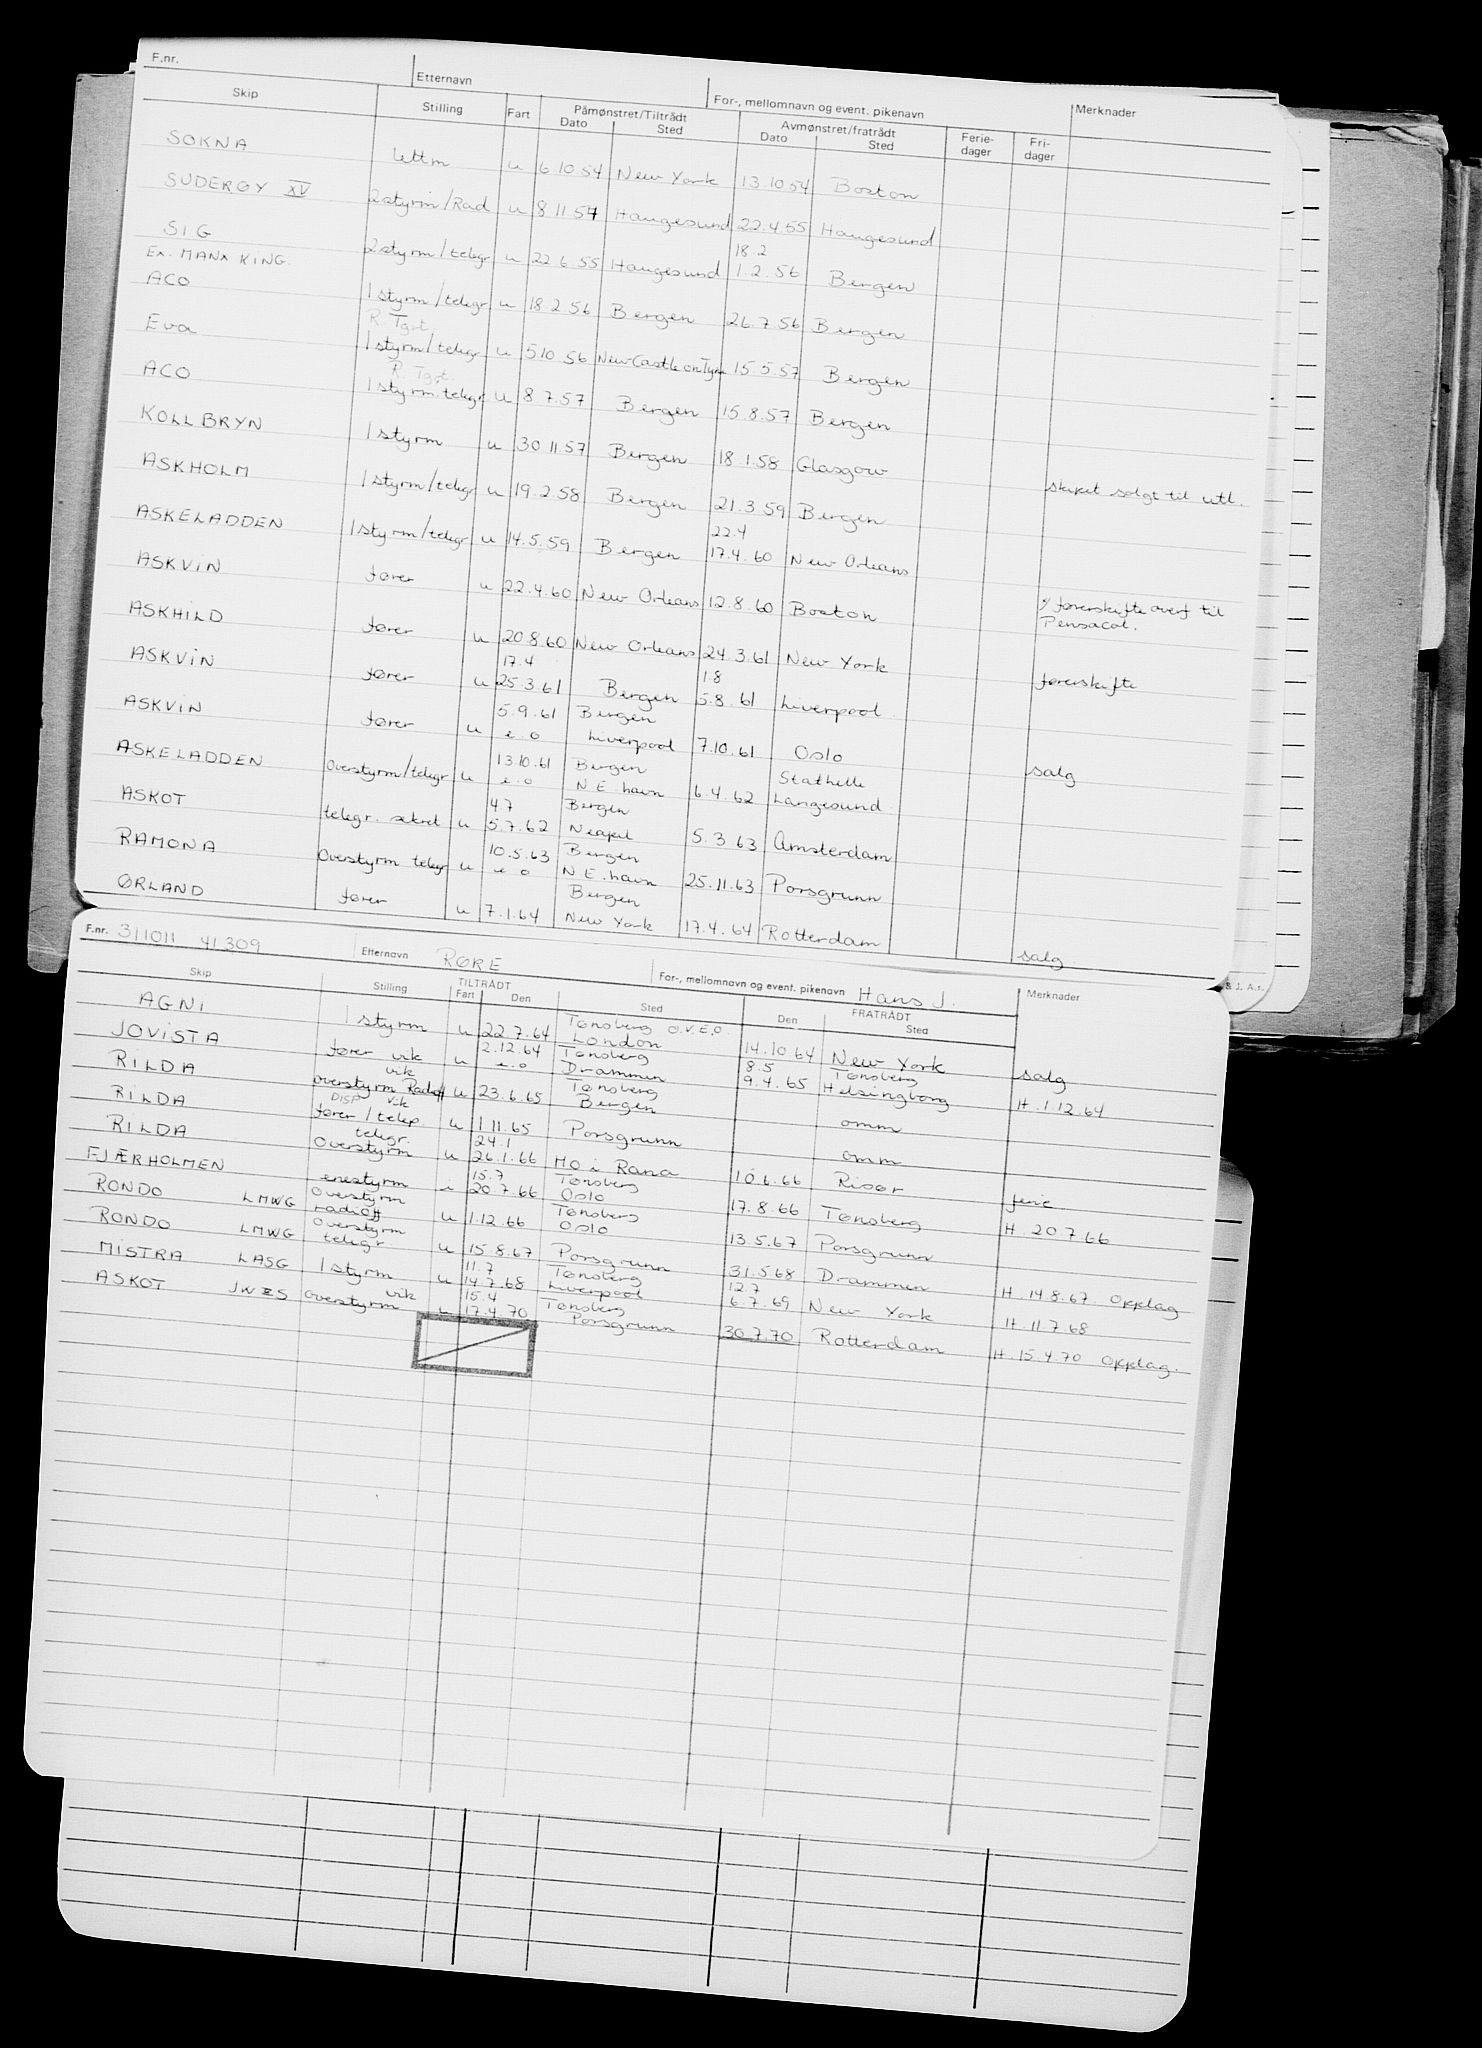 F.nr. Etternavn For-, mellomnavn og event. pikenavn Merknader
Skip Stilling Fart Påmønstret/Tiltrådt Dato Sted Avmønstret/fratrådt Dato Sted Ferie-dager Fri-dager
SOKNA lettm u 6.10.54 New York 13.10.54 Boston
SUDERØY XV 2styrm/Rad u 8.11.54 Haugesund 22.4.55 Haugesund
18.2
SIG 2styrm/telegr u 22.6.55 Haugesund 1.2.56 Bergen
Ex. MANX KING.
ACO 1styrm/telegr u 18.2.56 Bergen 26.7.56 Bergen
R. Tgrt.
Eva 1styrm/telegr u 5.10.56 New Castle on Tyne 15.5.57 Bergen
R. Tgrt
ACO 1styrm.telegr u 8.7.57 Bergen 15.8.57 Bergen
KOLLBRYN 1styrm u 30.11.57 Bergen 18.1.58 Glasgow skipet solgt til utl.
ASKHOLM 1styrm/telegr u 19.2.58 Bergen 21.3.59 Bergen
22.4
ASKELADDEN 1styrm/telegr u 14.5.59 Bergen 17.4.60 New Orleans
ASKVIN fører u 22.4.60 New Orleans 12.8.60 Boston v/førerskifte overf til
Pensacol.
ASKHILD fører u 20.8.60 New Orleans 24.3.61 New York førerskifte
17.4 1.8
ASKVIN fører u 25.3.61 Bergen 5.8.61 Liverpool
5.9.61 Bergen
ASKVIN fører u e.o Liverpool 7.10.61 Oslo salg
13.10.61 Bergen Stathelle
ASKELADDEN Overstyrm/telegr u e.o N.E.havn 6.4.62 Langesund
4.7 Bergen
ASKOT telegr. sekret u 5.7.62 Neapel 5.3.63 Amsterdam
10.5.63 Bergen
RAMONA Overstyrm telegr u e.o N.E.havn 25.11.63 Porsgrunn
Bergen
ØRLAND fører u 7.1.64 New York 17.4.64 Rotterdam salg
& J. A.s.
F.nr. 311011 41309 Etternavn RØRE For-, mellomnavn og event. pikenavn Hans J. Merknader
Skip Stilling TILTRÅDT Fart Den Sted FRATRÅDT Den Sted
Tønsberg O.V.E.O.
AGNI 1styrm u 22.7.64 London 14.10.64 New York salg
2.12.64 Tønsberg 8.5 Tønsberg
JOVISTA fører vik u e.o Drammen 9.4.65 Helsingborg H.1.12.64
vik Tønsberg
RILDA overstyrm Radioff u 23.6.65 Bergen omm
DISP vik
RILDA fører/telep. u 1.11.65 Porsgrunn omm
telegr. 24.1
RILDA Overstyrm u 26.1.66 MO i Rana 10.6.66 Risør ferie
15.7 Tønsberg
FJÆRHOLMEN enestyrm i 20.7.66 Oslo 17.8.66 Tønsberg H. 20.7.66
Overstyrm Tønsberg
RONDO LMWG radioff u 1.12.66 Oslo 13.5.67 Porsgrunn
Overstyrm
RONDO LMWG telegr u 15.8.67 Porsgrunn 31.5.68 Drammen H. 14.8.67 Opplag
11.7 Tønsberg 12.7
MISTRA LASG 1styrm u 14.7.68 Liverpool 6.7.69 New York H. 11.7.68
vik 15.4 Tønsberg
ASKOT JWES Overstyrm u 17.4.70 Porsgrunn 30.7.70 Rotterdam H. 15.4.70 Opplag.